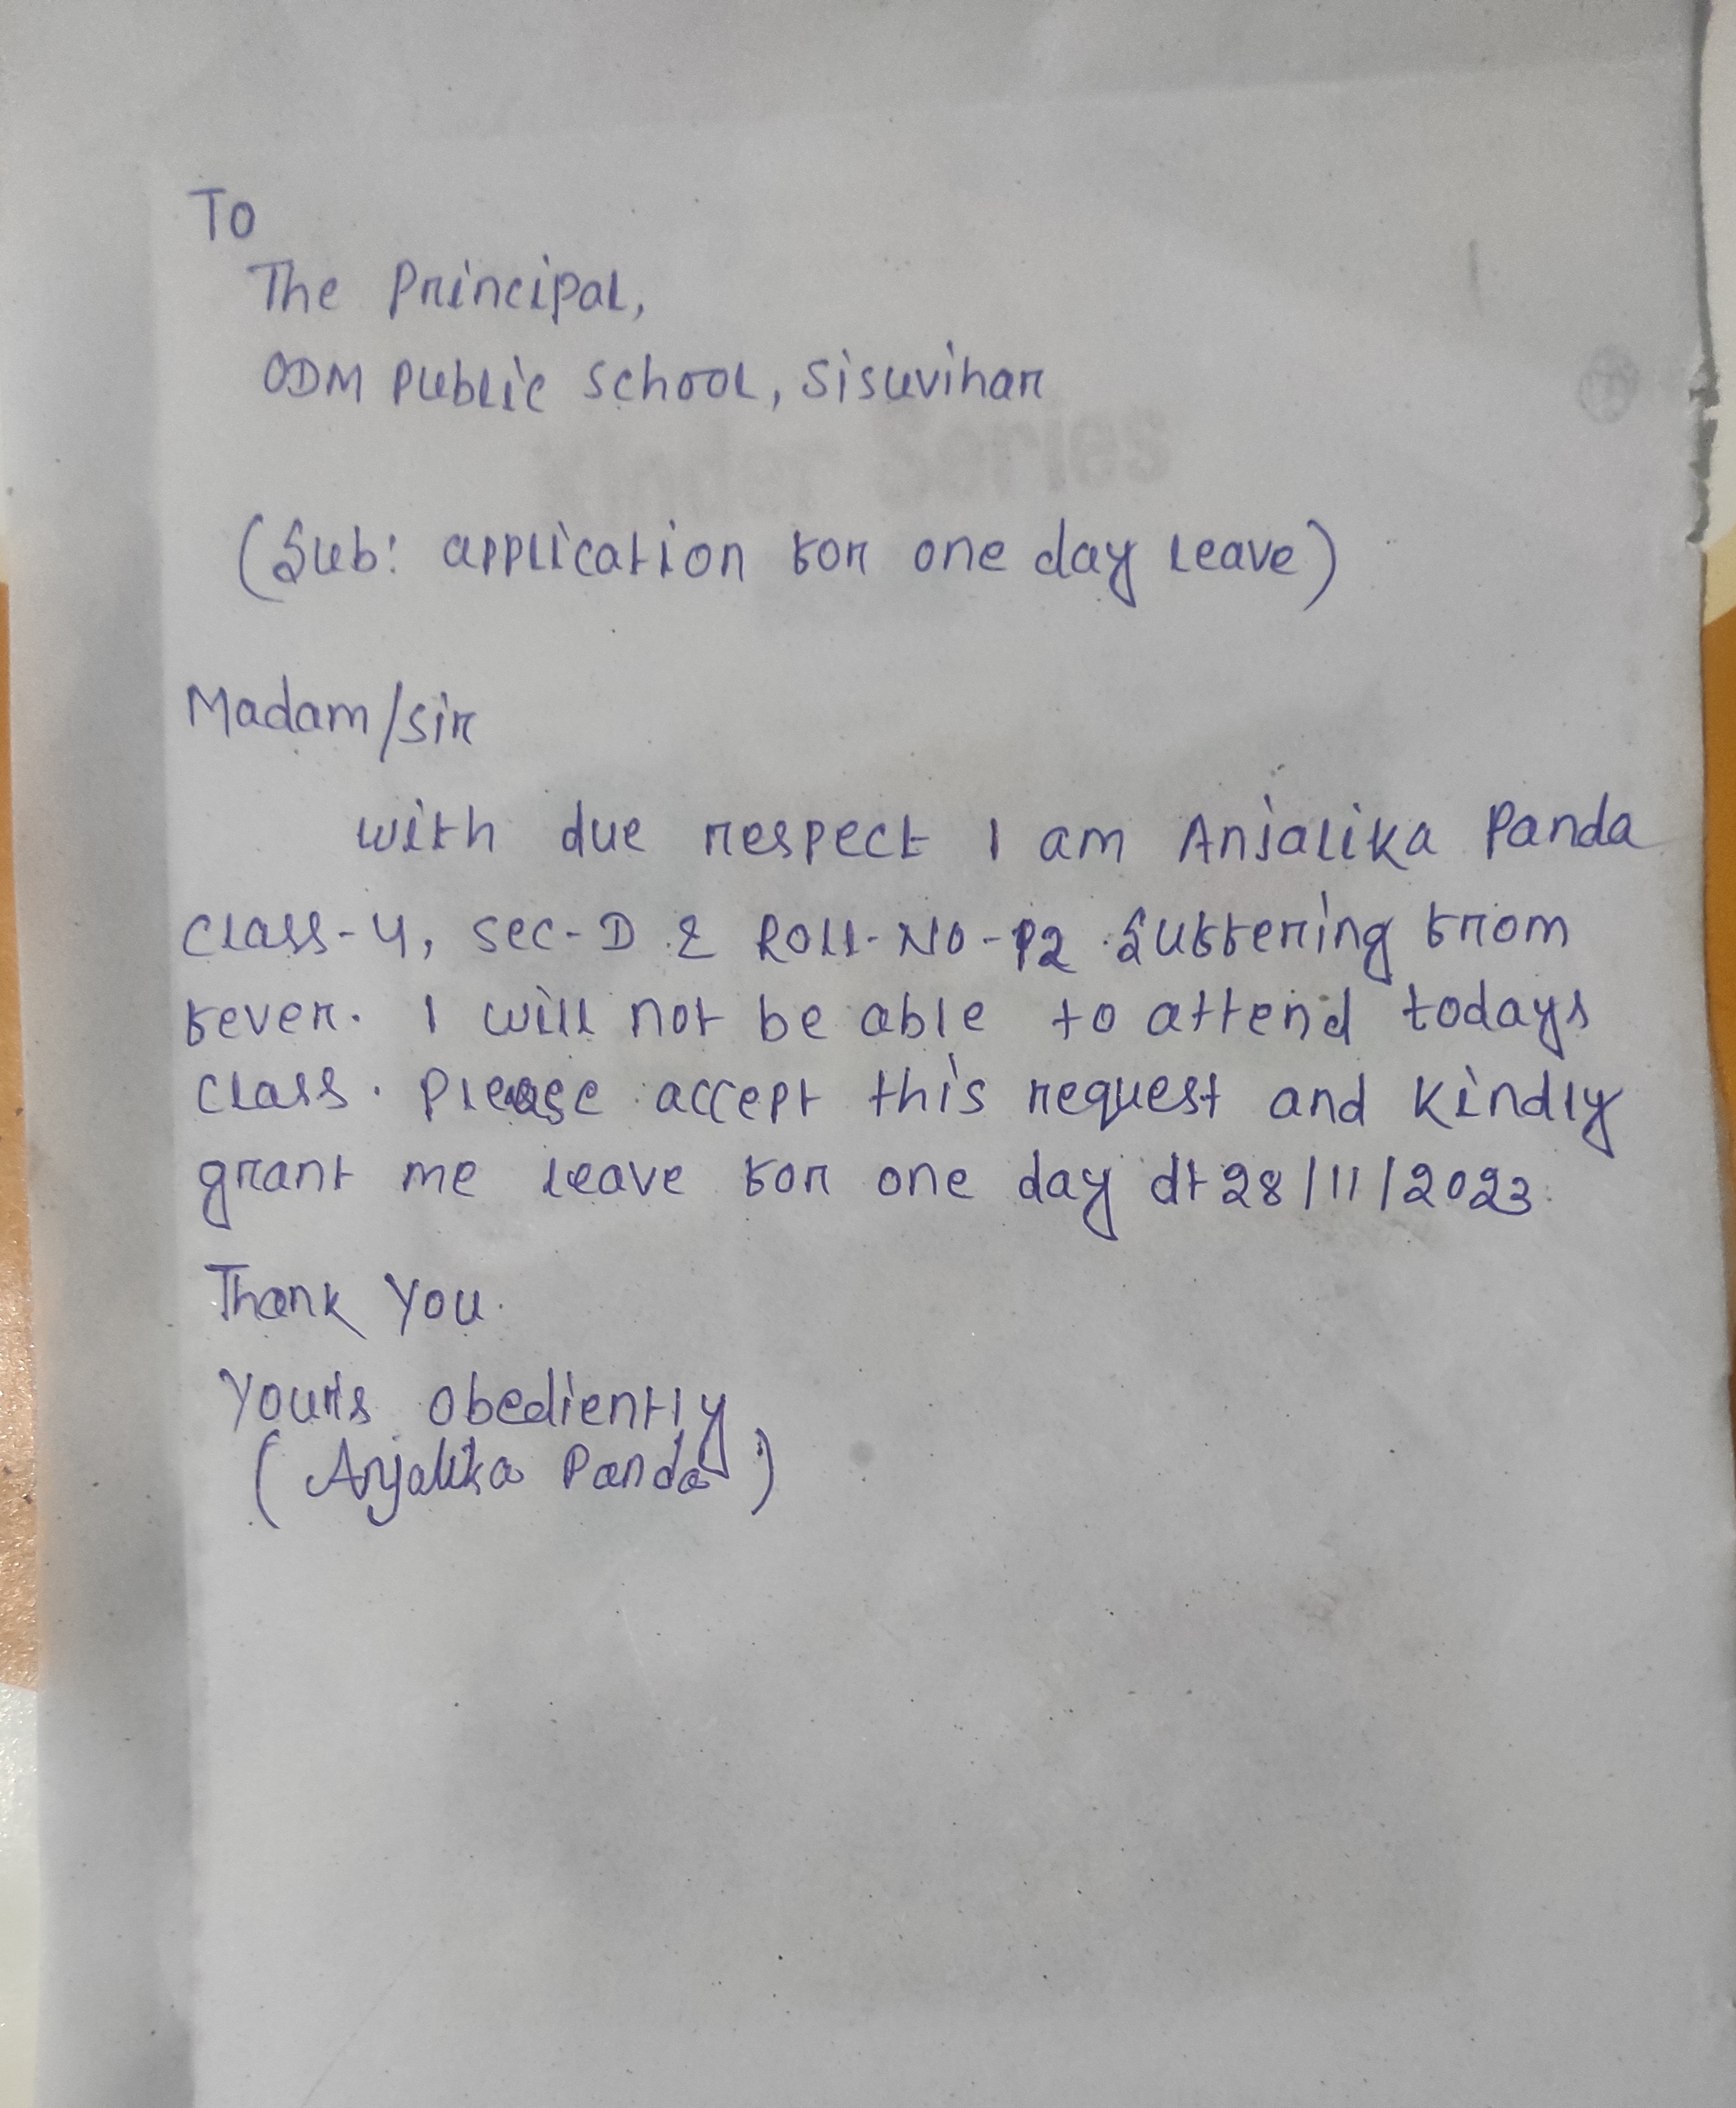 To
The Principal,
ODM Public School, Sisuvihar
Kinder Series
(Sub: application for one day leave)
Madam/Sir
with due respect I am Anjalika Panda
Class-4, Sec-D & Roll-No-12 Suffering from
fever. I will not be able to attend todays
class. Please accept this request and kindly
grant me leave for one day dt 28/11/2023.
Thank You.
Yours obediently
(Anjalika Panda)